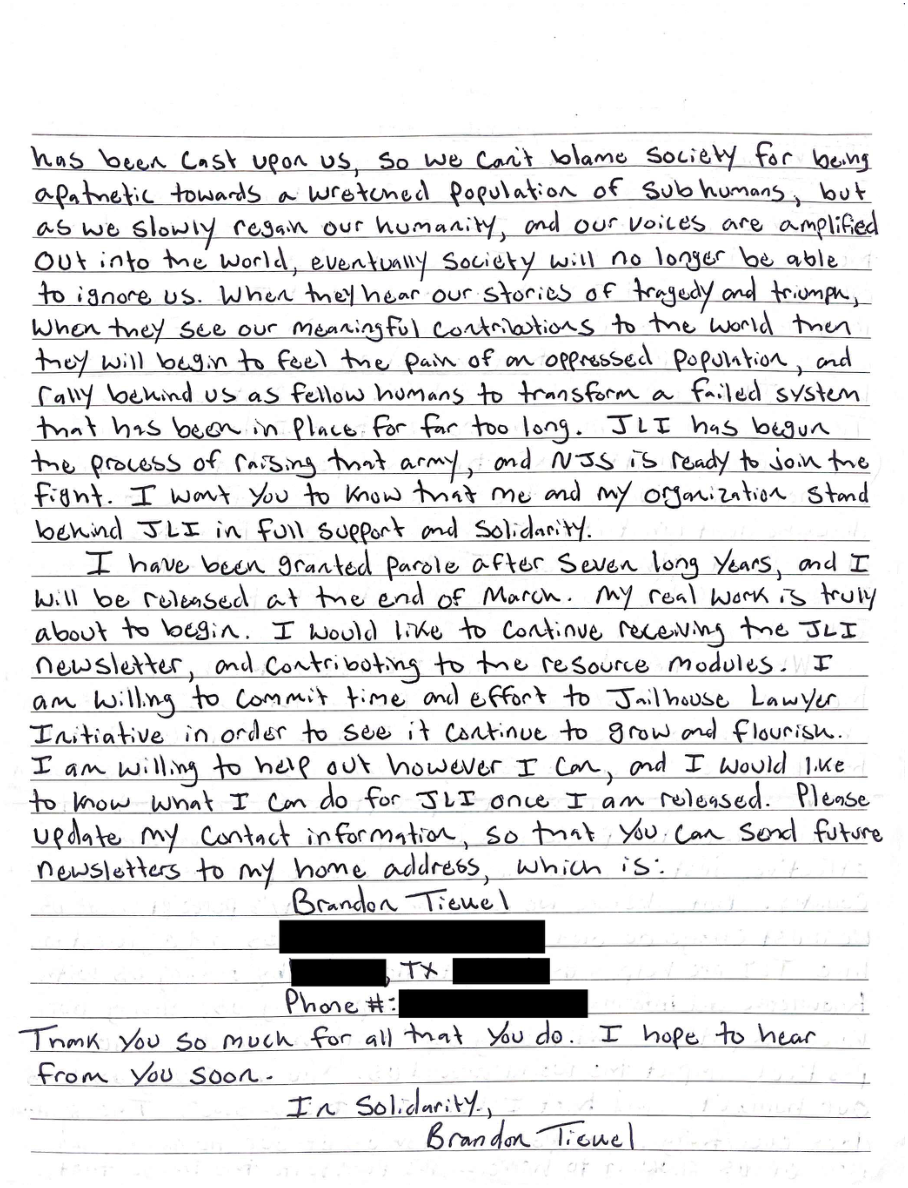 has been cast upon us, so we can't blame society for being
apathetic towards a wretched population of subhumans, but
as we slowly regain our humanity, and our voices are amplified
out into the world, eventually society will no longer be able
to ignore us. When they hear our stories of tragedy and triumph,
when they see our meaningful contributions to the world then
they will begin to feel the pain of an oppressed population, and
rally behind us as fellow humans to transform a failed system
that has been in place for far too long. JLI has begun
the process of raising that army, and NJS is ready to join the
fight. I want you to know that me and my organization stand
behind JLI in full support and solidarity.
I have been granted parole after seven long years, and I
will be released at the end of March. My real work is truly
about to begin. I would like to continue receiving the JLI
newsletter, and contributing to the resource modules. I
am willing to commit time and effort to Jailhouse Lawyer
Initiative in order to see it continue to grow and flourish.
I am willing to help out however I can, and I would like
to know what I can do for JLI once I am released. Please
update my contact information, so that you can send future
newsletters to my home address, which is:
Brandon Tieuel
, TX
Phone #:
Thank you so much for all that you do. I hope to hear
from you soon.
In Solidarity,
Brandon Tieuel